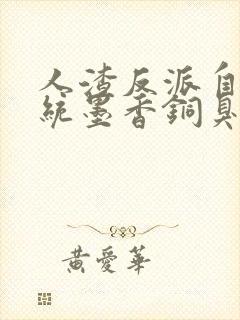 人渣反派自
統墨香銅臭
黃愛華